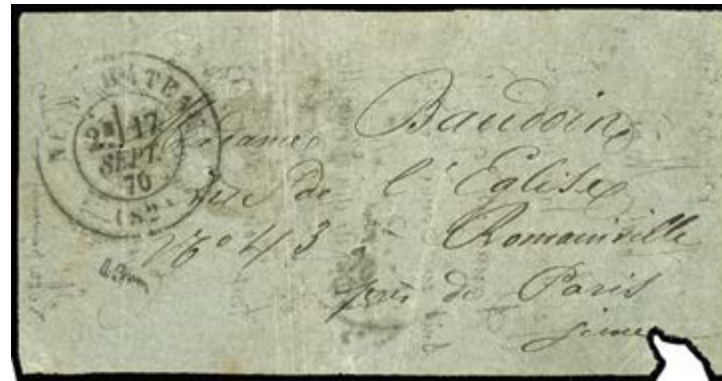 NEUFCHATEAU
2E 17
SEPT.
70
(82)
Madame Baudoin
rue de l'Eglise
No 43 Romainville
près de Paris
Seine